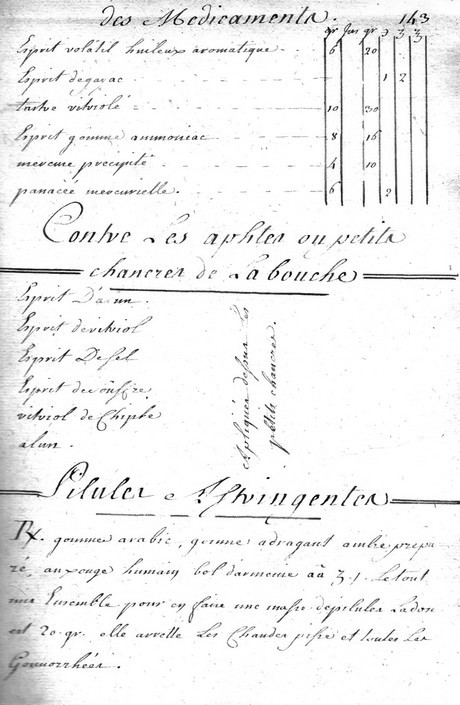 des Medicaments. 143
gr jus gr ℈ ʒ ℥
Esprit volatil huileux aromatique 6 20
Esprit de gayac 1 2
tartre vitriolé 10 30
Esprit gomme ammoniac 8 16
mercure precipité 4 10
panacée mercurielle. 6 2
Contre Les aphtes ou petits
chancres de La bouche
Esprit
Esprit de vitriol
Esprit De sel
Esprit de souffre
vitriol de Chipbe
alun.
appliqués dessus les
petits chancres.
Pilules Astringentes
Rx. gomme arabic, gomme adragant ambre prepa
ré, humain bol darmenie aã ʒ.1. Le tout
mis Ensemble pour en faire une masse de pilules La dose
est 20. gr. elle arrette Les Chaudes pisse et toutes Les
Gonnorrhées.